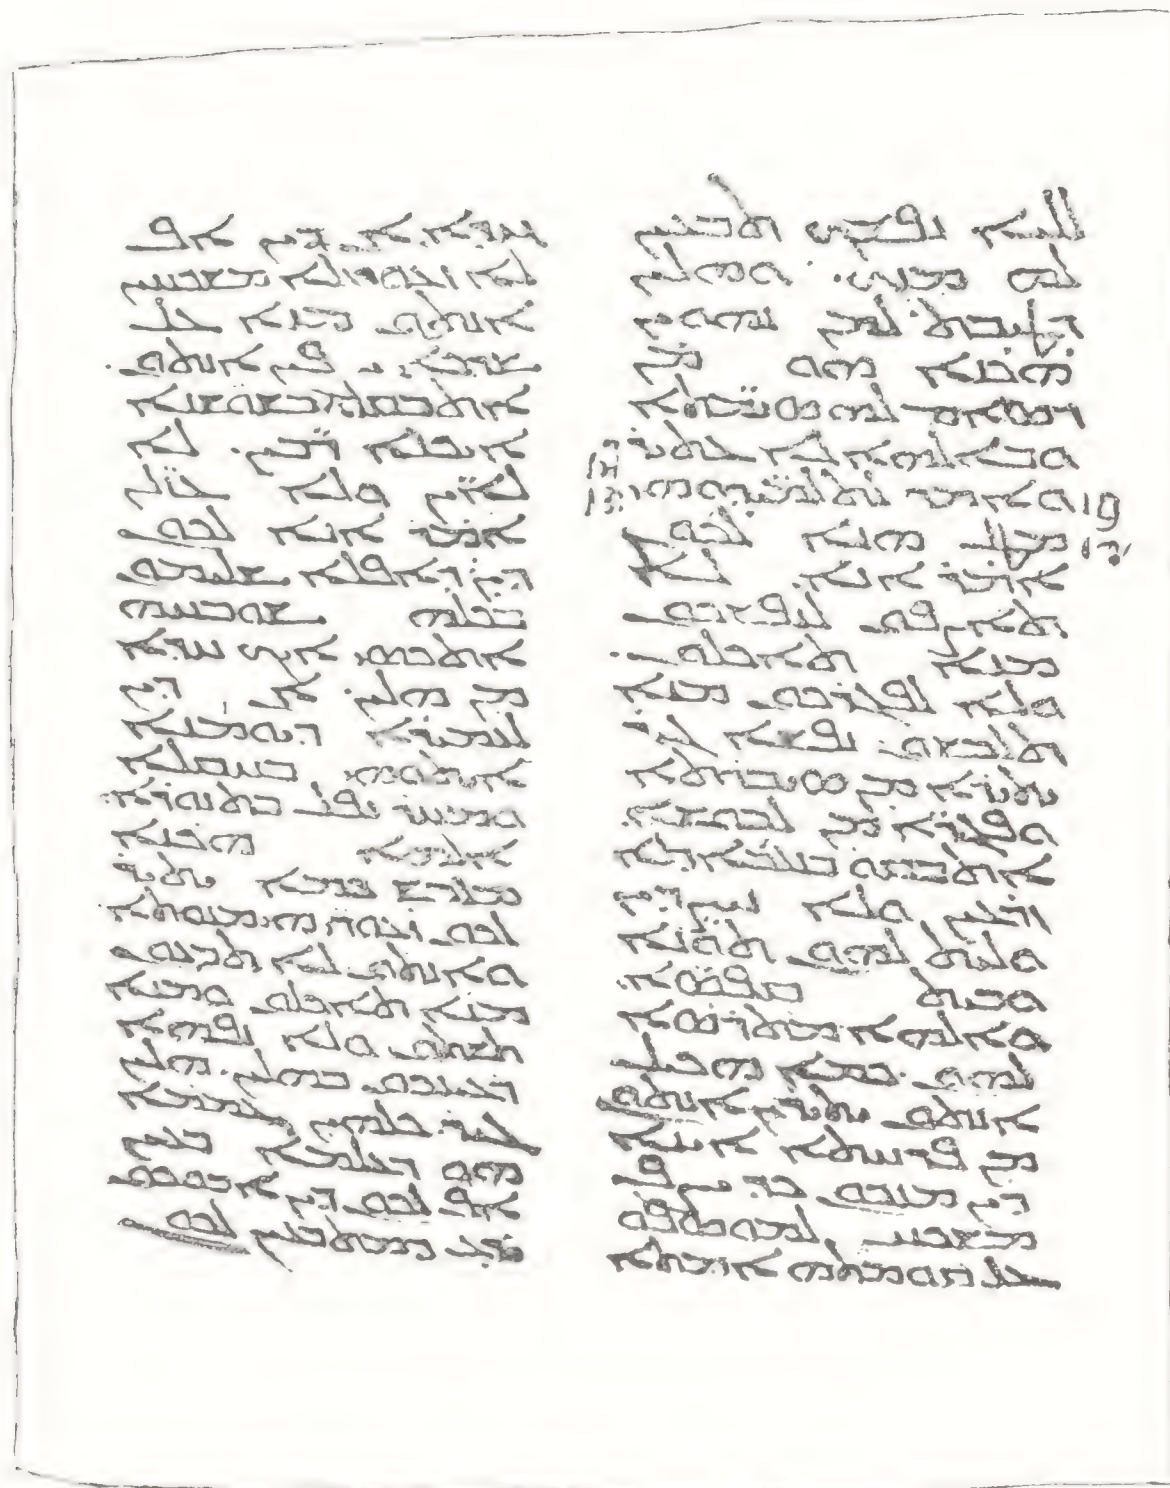 ܠܠܝܐ ܢܦܫܟ ܬܒܥܝܢ
ܠܗ ܡܢܟ. ܘܗܠܝܢ
ܕܛܝܒܬ ܠܡܢ ܢܗܘܝܢ
ܗܟܢܐ ܗܘ ܡܢ
ܕܣܐܡ ܠܗ ܣܝܡܬܐ
ܘܒܐܠܗܐ ܠܐ ܥܬܝܪ
ܘܐܡܪ ܠܬܠܡܝܕܘܗܝ
ܡܛܠ ܗܢܐ ܠܟܘܢ
ܐܡܪ ܐܢܐ ܠܐ
ܬܐܨܦܘܢ ܠܢܦܫܟܘܢ
ܡܢܐ ܬܐܟܠܘܢ.
ܘܠܐ ܠܦܓܪܟܘܢ ܡܢܐ
ܬܠܒܫܘܢ ܢܦܫܐ ܓܝܪ
ܝܬܝܪܐ ܡܢ ܣܝܒܪܬܐ
ܘܦܓܪܐ ܡܢ ܠܒܘܫܐ.
ܐܬܒܩܘ ܒܢܥܒܐ ܕܠܐ
ܙܪܥܝܢ ܘܠܐ ܚܨܕܝܢ
ܘܠܝܬ ܠܗܘܢ ܬܘܢܐ
ܘܒܝܬ ܩܦܣܐ.
ܘܐܠܗܐ ܡܬܪܣܐ
ܠܗܘܢ. ܟܡܐ ܗܟܝܠ
ܐܢܬܘܢ ܝܬܝܪܝܢ ܐܢܬܘܢ
ܡܢ ܦܪܚܬܐ ܐܝܢܐ
ܕܝܢ ܡܢܟܘܢ ܟܕ ܝܨܦ
ܡܫܟܚ ܠܡܘܣܦܘ
ܥܠ ܩܘܡܬܗ ܐܡܬܐ
ܚܕܐ. ܐܢ ܕܝܢ ܐܦ
ܠܐ ܙܥܘܪܬܐ ܡܫܟܚܝܢ
ܐܢܬܘܢ ܡܢܐ ܥܠ
ܫܪܟܐ ܝܨܦܝܢ ܐܢܬܘܢ.
ܐܬܒܩܘ ܒܫܘܫܢܐ
ܐܝܟܢܐ ܪܒܝܢ. ܠܐ
ܠܐܝܢ ܘܠܐ ܥܙܠܢ
ܐܡܪ ܐܢܐ ܠܟܘܢ
ܕܝܢ ܕܐܦܠܐ ܫܠܝܡܘܢ
ܒܟܠܗ ܫܘܒܚܗ
ܐܬܟܣܝ ܐܝܟ ܚܕܐ
ܡܢ ܗܠܝܢ. ܐܢ ܕܝܢ
ܠܥܡܝܪܐ ܕܝܘܡܢܐ
ܐܝܬܘܗܝ ܒܚܩܠܐ
ܘܡܚܪ ܢܦܠ ܒܬܢܘܪܐ.
ܐܠܗܐ ܗܟܢܐ
ܡܠܒܫ ܟܡܐ ܝܬܝܪ
ܠܟܘܢ ܙܥܘܪܝ ܗܝܡܢܘܬܐ
ܘܐܢܬܘܢ ܠܐ ܬܨܦܘܢ
ܡܢܐ ܬܐܟܠܘܢ ܘܡܢܐ
ܬܫܬܘܢ ܘܠܐ ܢܦܗܐ
ܪܥܝܢܟܘܢ ܒܗܠܝܢ. ܗܠܝܢ
ܓܝܪ ܟܠܗܝܢ ܥܡܡܐ
ܗܘ ܕܥܠܡܐ ܒܥܝܢ
ܐܦ ܠܟܘܢ ܕܝܢ ܐܒܘܟܘܢ
ܝܕܥ ܕܡܬܒܥܝܢ ܠܟܘܢ